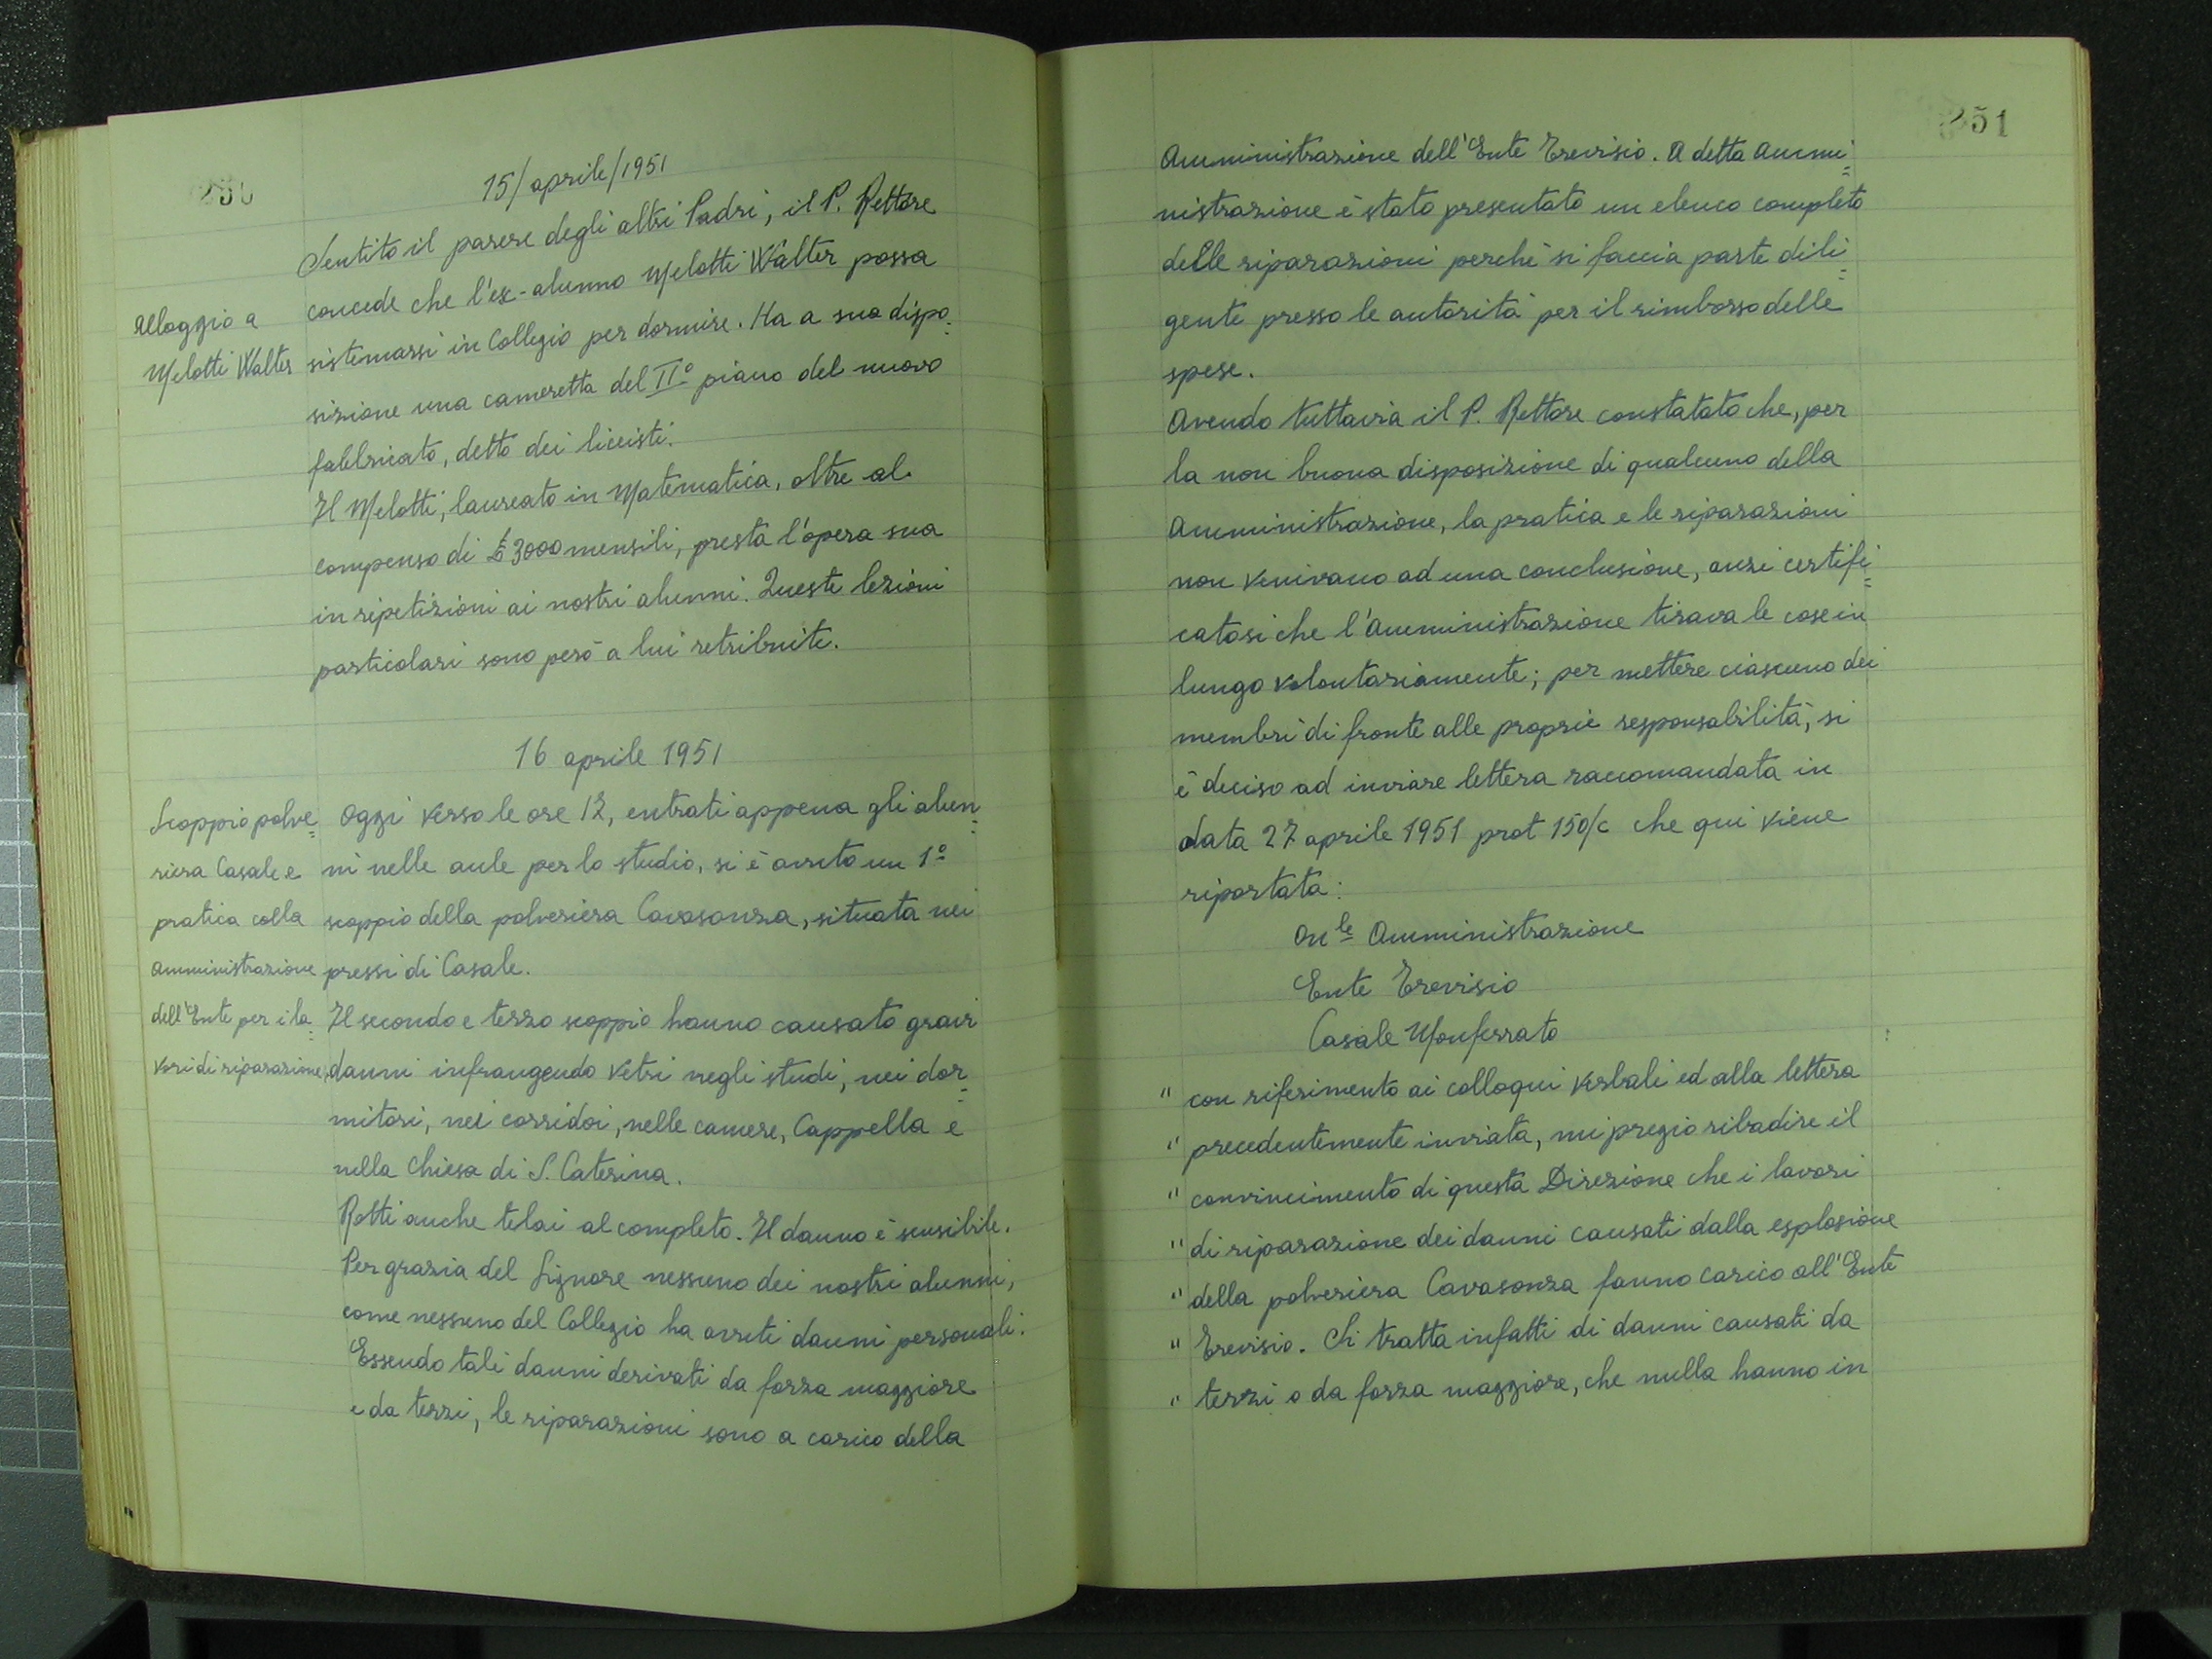 250
15/aprile/1951
Sentito il parere degli altri Padri, il P. Rettore
concede che l'ex-alunno Melotti Walter possa
Alloggio a
Melotti Walter
sistemarsi in Collegio per dormire. Ha a sua dispo=
sizione una cameretta del IIº piano del nuovo
fabbricato, detto dei liceisti.
Il Melotti, laureato in Matematica, oltre al
compenso di £ 3000 mensili, presta l'opera sua
in ripetizioni ai nostri alunni. Queste lezioni
particolari sono però a lui retribuite.
16 aprile 1951
Scoppio polve=
riera Casale e
pratica colla
amministrazione
dell'Ente per i la=
vori di riparazione
Oggi verso le ore 12, entrati appena gli alun=
ni nelle aule per lo studio, si è avuto un 1º
scoppio della polveriera Cavasonza, situata nei
pressi di Casale.
Il secondo e terzo scoppio hanno causato gravi
danni infrangendo vetri negli studi, nei dor=
mitori, nei corridoi, nelle camere, Cappella e
nella Chiesa di S. Caterina.
Rotti anche telai al completo. Il danno è sensibile.
Per grazia del Signore nessuno dei nostri alunni,
come nessuno del Collegio ha avuti danni personali.
Essendo tali danni derivati da forza maggiore
e da terzi, le riparazioni sono a carico della
251
Amministrazione dell'Ente Trevisio. A detta Ammi=
nistrazione è stato presentato un elenco completo
delle riparazioni perchè si faccia parte dili=
gente presso le autorità per il rimborso delle
spese.
Avendo tuttavia il P. Rettore constatato che, per
la non buona disposizione di qualcuno della
Amministrazione, la pratica e le riparazioni
non venivano ad una conclusione, anzi certifi=
catosi che l'Amministrazione tirava le cose in
lungo volontariamente; per mettere ciascuno dei
membri di fronte alle proprie responsabilità, si
è deciso ad inviare lettera raccomandata in
data 27 aprile 1951 prot 150/c che qui viene
riportata:
On le Amministrazione
Ente Trevisio
Casale Monferrato
" con riferimento ai colloqui verbali ed alla lettera
" precedentemente inviata, mi pregio ribadire il
" convincimento di questa Direzione che i lavori
" di riparazione dei danni causati dalla esplosione
" della polveriera Cavasonza fanno carico all'Ente
" Trevisio. Si tratta infatti di danni causati da
" terzi o da forza maggiore, che nulla hanno in